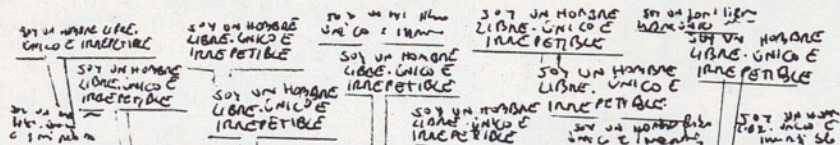 SOY UN HOMBRE LIBRE.
ÚNICO E IRREPETIBLE
SOY UN HOMBRE
LIBRE. ÚNICO E
IRREPETIBLE
SOY UN HOMBRE
LIBRE. ÚNICO E
IRREPETIBLE
SOY UN HOMBRE
LIBRE. ÚNICO E
IRREPETIBLE
SOY UN
ÚNICO E
SOY UN HOMBRE
LIBRE. ÚNICO E
IRREPETIBLE
SOY UN HOMBRE
LIBRE. ÚNICO E
IRREPETIBLE
SOY UN HOMBRE
LIBRE. ÚNICO E
IRREPETIBLE
SOY UN HOMBRE
LIBRE. ÚNICO E
IRREPETIBLE
SOY UN
SOY UN HOMBRE
LIBRE. ÚNICO E
IRREPETIBLE
SOY UN
ÚNICO E
SOY UN
ÚNICO E